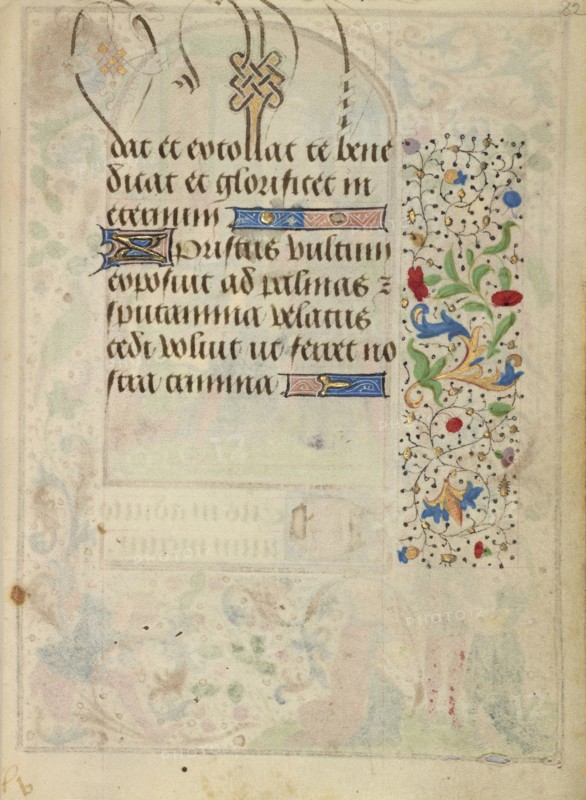 22
dat et extollat te bene
dicat et glorificet in
eternum
Xpristus vultum
exposuit ad palmas z
sputamina velatus
cedi voluit ut ferret no
stra crimina